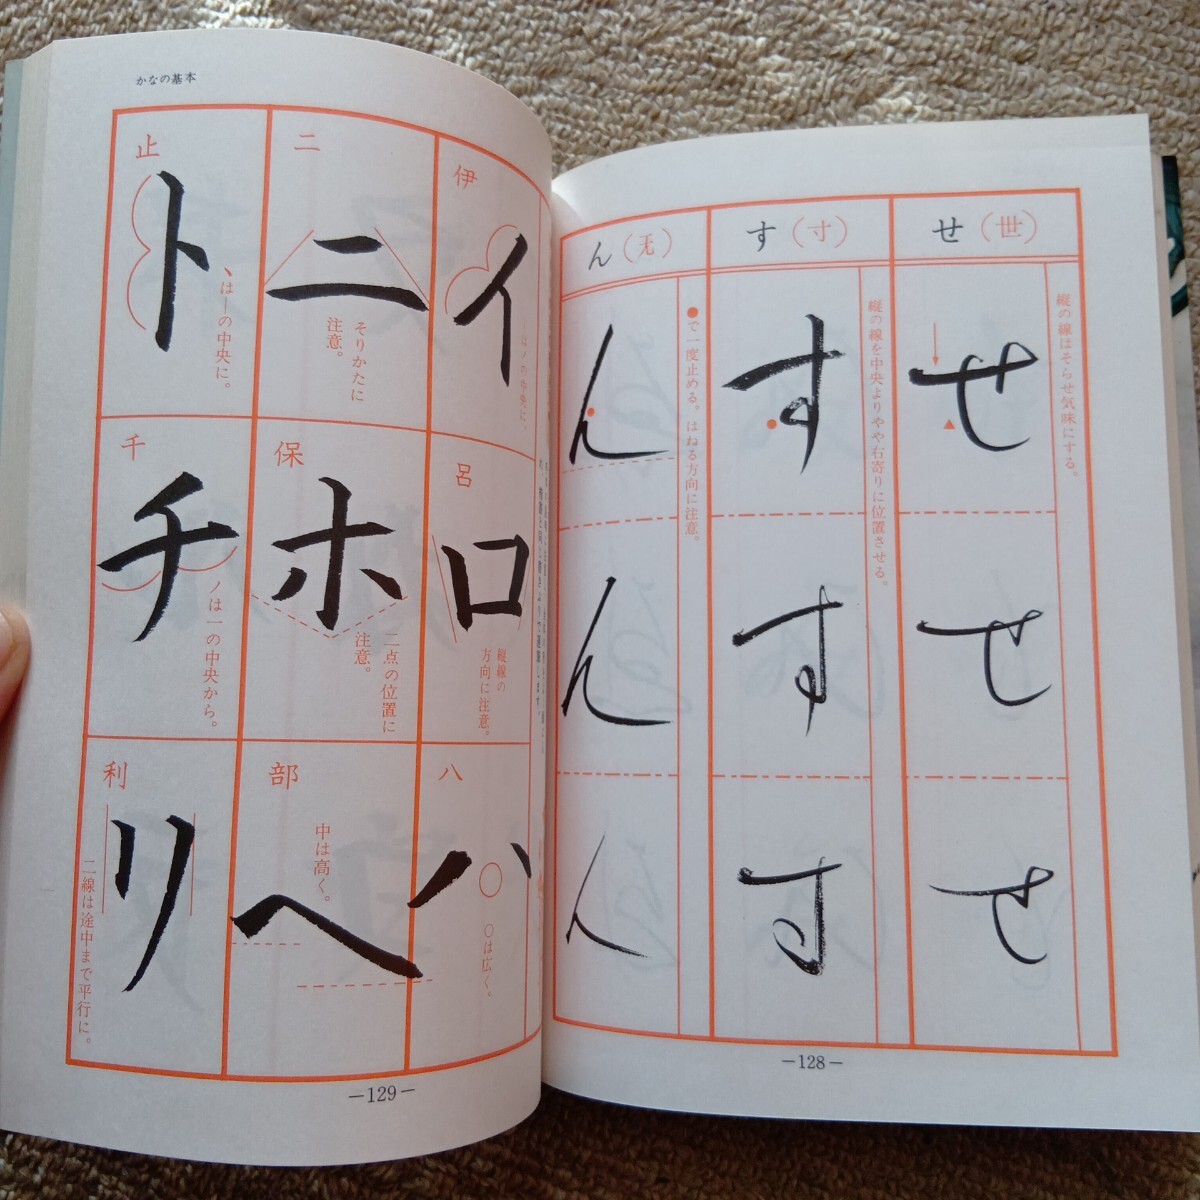 せ（世）
縦の線はそらせ気味にする。
せ
せ
せ
す（寸）
縦の線を中央よりやや右寄りに位置させる。
す
す
す
ん（无）
●で一度止める。はねる方向に注意。
ん
ん
ん
—128—
かなの基本
伊
イ
はノの中央に。
呂
ロ
縦線の
方向に注意。
八
ハ
○は広く。
二
ニ
そりかたに
注意。
保
ホ
二点の位置に
注意。
部
ヘ
中は高く。
止
ト
、は｜の中央に。
千
チ
ノは一の中央から。
利
リ
二線は途中まで平行に。
—129—